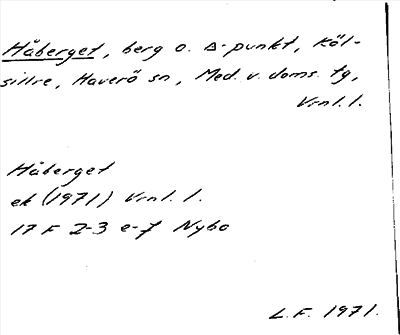 Håberget, berg o. Δ-punkt, Köl-
sillre, Haverö sn, Med. v. doms. tg,
Vrnl. l.
Håberget
ek (1971) Vrnl. l.
17 F 2-3 e-f Nybo
L. F. 1971.